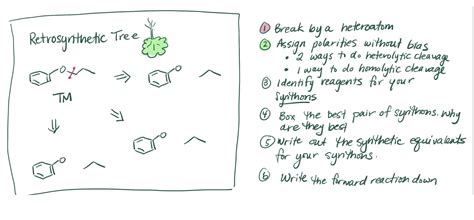 Retrosynthetic Tree
O
O
TM
O
O
① Break by a heteroatom
② Assign polarities without bias
• 2 ways to do heterolytic cleavage
• 1 way to do homolytic cleavage
③ Identify reagents for your
synthons
④ Box the best pair of synthons. Why
are they best
⑤ Write out the synthetic equivalents
for your synthons.
⑥ Write the forward reaction down